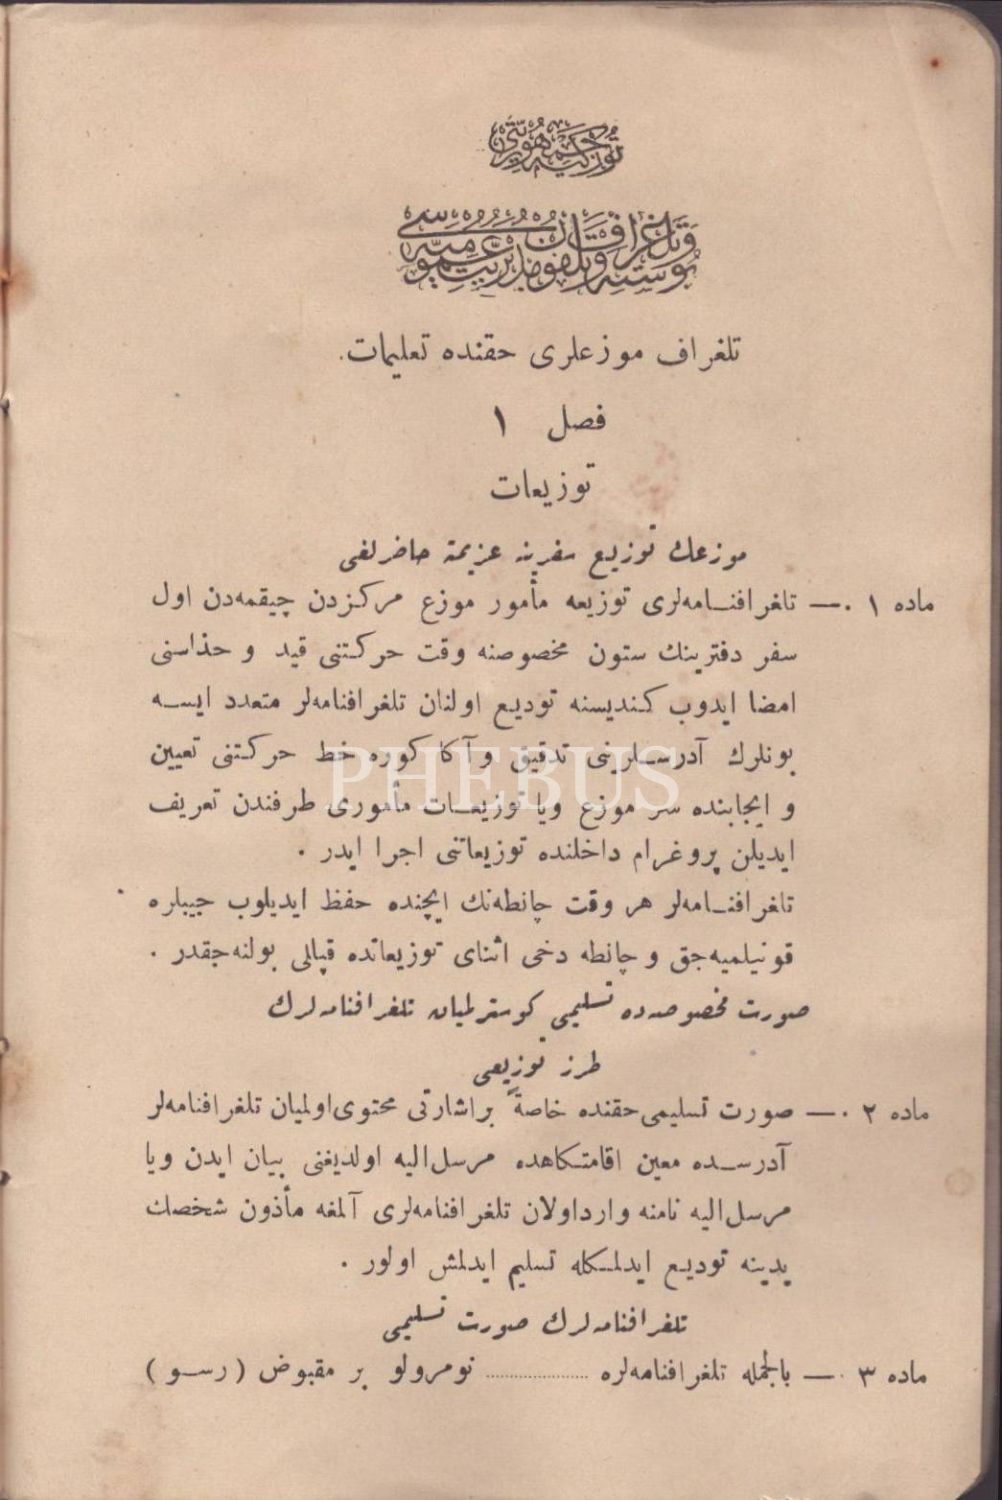 توركيه جمهوريتى
پوسته و تلغراف و تلفون مديريت عموميه سى
تلغراف موزعلرى حقنده تعليمات.
فصل ١
توزيعات
موزعك توزيع سفرينه عزيمة حاضرلغى
ماده ١ .— تلغرافنامه‌لرى توزيعه مأمور موزع مركزدن چيقمه‌دن اول
سفر دفترينك ستون مخصوصنه وقت حركتنى قيد و حذاسنى
امضا ايدوب كنديسنه توديع اولنان تلغرافنامه‌لر متعدد ايسه
بونلرك آدرسلرينى تدقيق و آكا كوره خط حركتنى تعيين
و ايجابنده سر موزع ويا توزيعات مأمورى طرفندن تعريف
ايديلن پروغرام داخلنده توزيعاتنى اجرا ايدر .
تلغرافنامه‌لر هر وقت چانطه‌نك ايچنده حفظ ايديلوب جيبلره
قونيلميه‌جق و چانطه دخى اثناى توزيعاتده قپالى بولنه‌جقدر .
صورت مخصوصه‌ده تسليمى كوسترلميان تلغرافنامه‌لرك
طرز توزيعى
ماده ٢ .— صورت تسليمى حقنده خاصةً بر اشارتى محتوى اولميان تلغرافنامه‌لر
آدرسده معين اقامتكاهده مرسل‌اليه اولديغنى بيان ايدن ويا
مرسل‌اليه نامنه وارد اولان تلغرافنامه‌لرى آلمغه مأذون شخصك
يدينه توديع ايدلمكله تسليم ايدلمش اولور .
تلغرافنامه‌لرك صورت تسليمى
ماده ٣ .— بالجمله تلغرافنامه‌لره .................... نومرولو بر مقبوض ( رسو )
PHEBUS